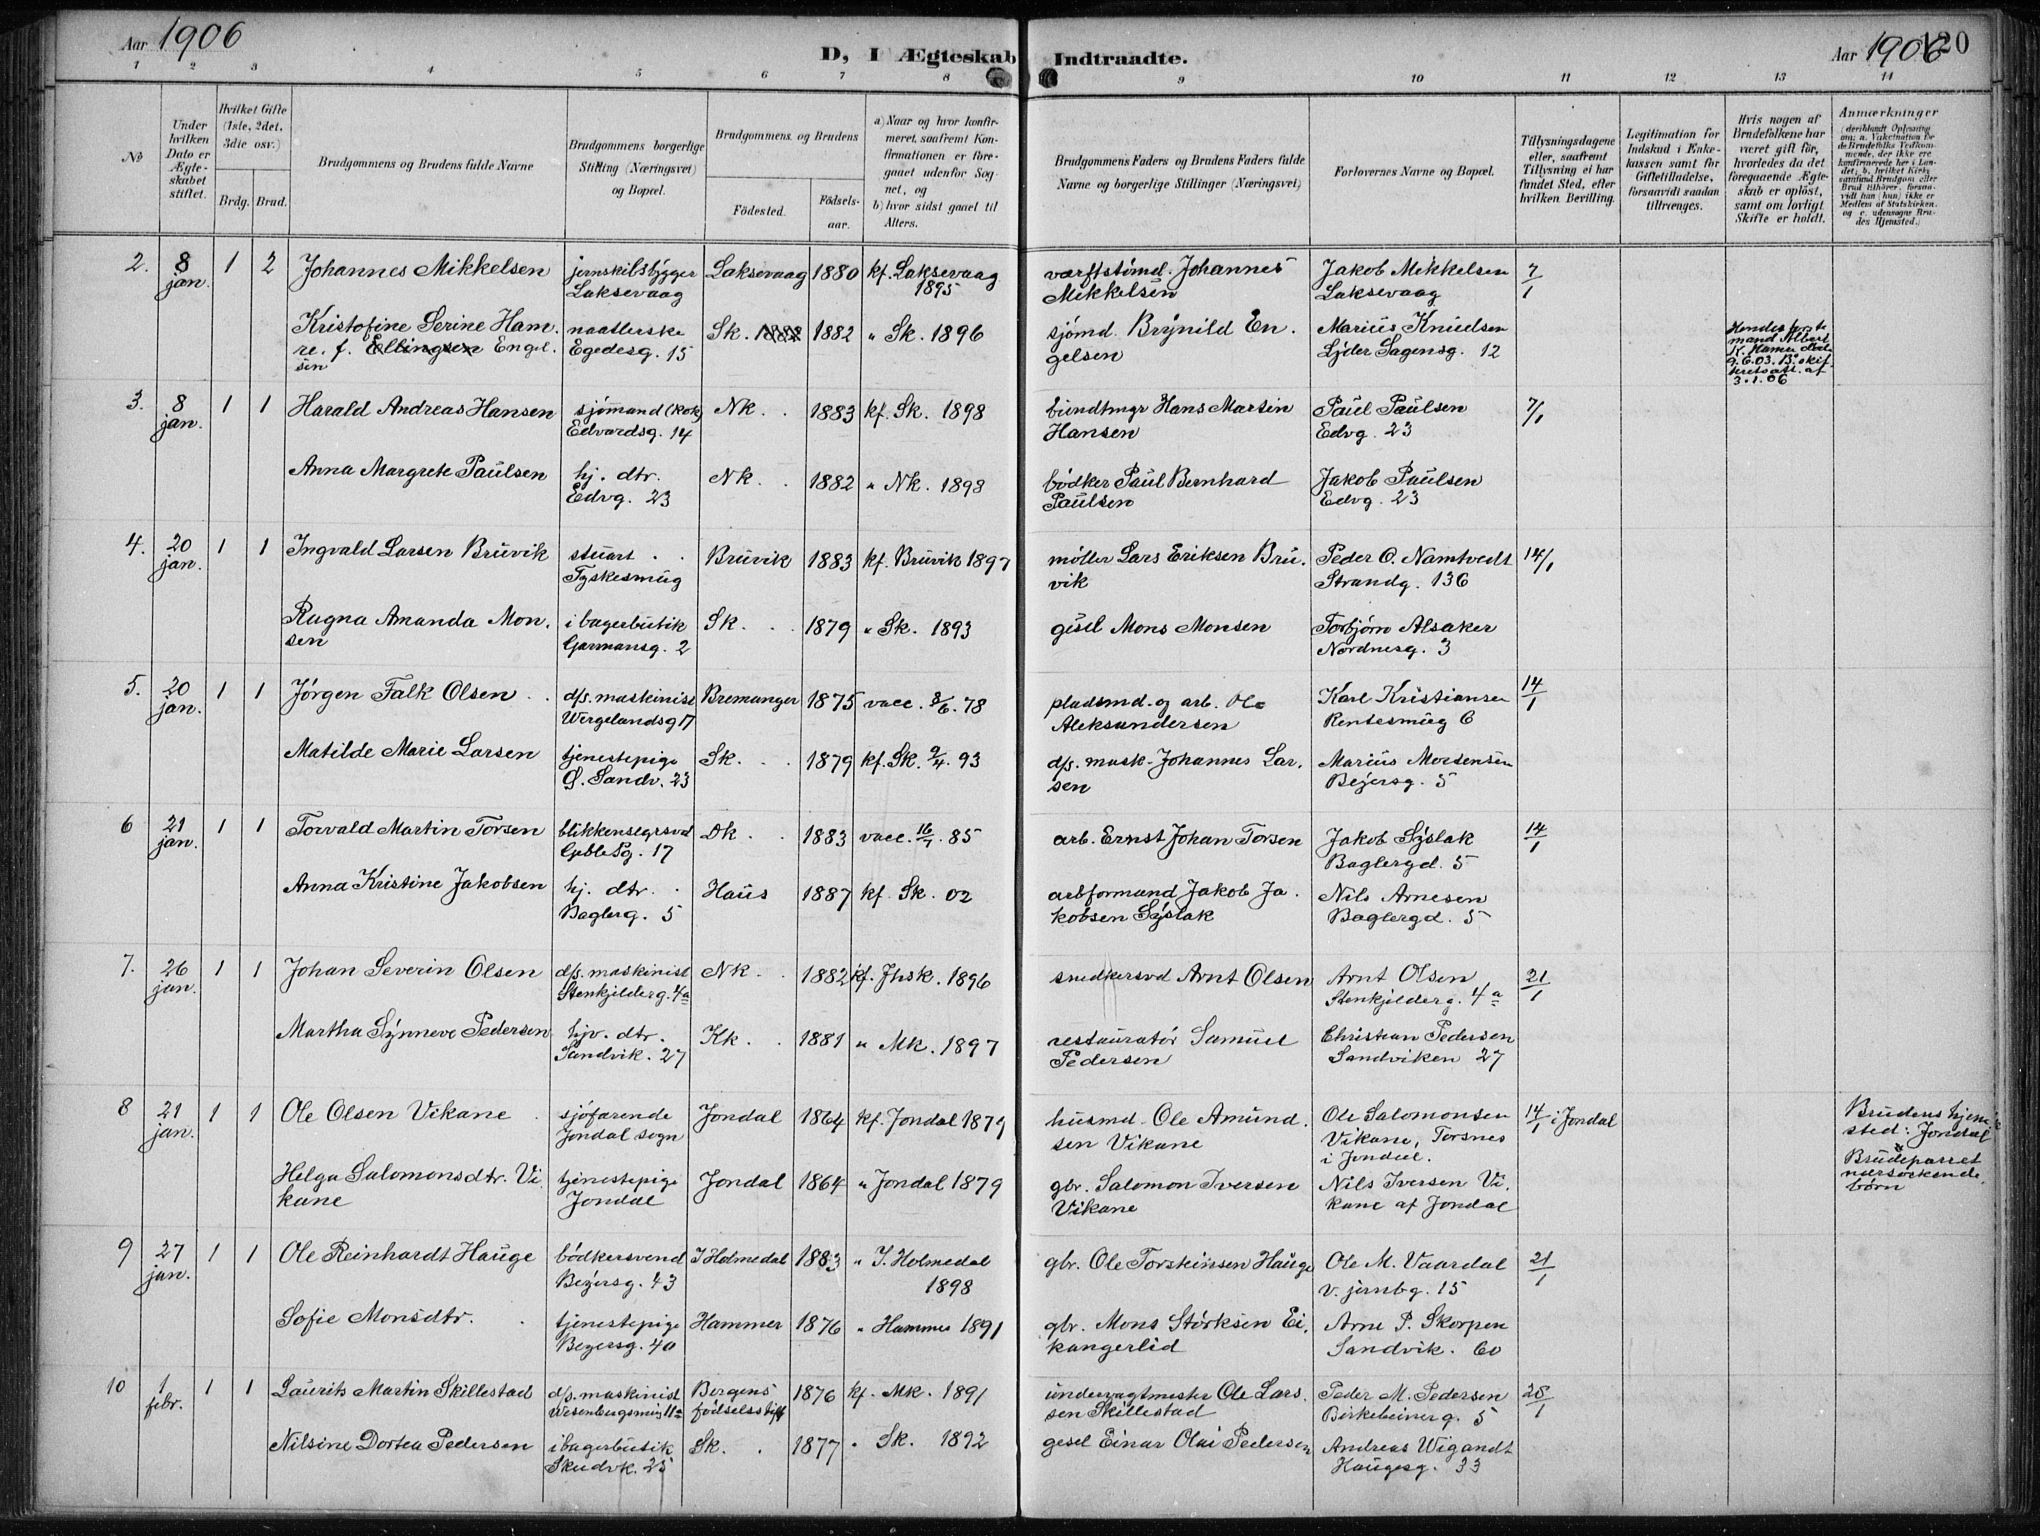 Aar 1906
D, I Ægteskab Indtraadte.
Aar 1906
120
1 2 3 4 5 6 7 8 9 10 11 12 13 14
No
Under
hvilken
Dato er
Ægte-
skabet
stiftet.
Hvilket Gifte
(1ste, 2det,
3die osv.)
Brdg. Brud.
Brudgommens og Brudens fulde Navne
Brudgommens borgerlige
Stilling (Næringsvei)
og Bopæl.
Brudgommens og Brudens
Fødested.
Fødsels-
aar.
a) Naar og hvor konfir-
meret, saafremt Kon-
firmationen er fore-
gaaet udenfor Sog
net, og
b) hvor sidst gaaet til
Alters.
Brudgommens Faders og Brudens Faders fulde
Navne og borgerlige Stillinger (Næringsvei)
Forlovernes Navne og Bopæl.
Tillysningsdagene
eller, saafremt
Tillysning ei har
fundet Sted, efter
hvilken Bevilling.
Legitimation for
Indskud i Enke-
kassen samt for
Giftetilladelse,
forsaavidt saadan
tiltrænges.
Hvis nogen af
Brudefolkene har
været gift før,
hvorledes da det
foregaaende Ægte-
skab er opløst,
samt om lovligt
Skifte er holdt.
Anmærkninger
(deriblandt Oplysning
om: a. Vakcination for
de Brudefolks Vedkom-
mende, der ikke ere
konfirmerede her i Lan-
det; b. hvilket Kirke-
samfund Brudgom eller
Brud tilhører, forsaa-
vidt han (hun) ikke er
Medlem af Statskirken.
og c. udensogns Bru-
des Hjemsted.)
2. 8 1 2 Johannes Mikkelsen jernskibsbygger Laksevaag 1880 kf. Laksevaag værftstømd. Johannes Jakob Mikkelsen 7/1
jan. Laksevaag 1895 Mikkelsen Laksevaag
Kristofine Serine Ham. naatlerske Sk. 1882 1882 " Sk. 1896 sjømd. Brynild En. Marius Knudsen
re. f. Ellingsen Engel. Egedesg. 15 gelsen Lyder Sagensg. 12
sen
Hendes første
mand Albert
K. Hamre død
9.6.03. B. skif
teretsatt. af
3.1.06
3. 8 1 1 Harald Andreas Hansen sjømand (kok) Nk. 1883 kf. Sk. 1898 bundtmgr Hans Martin Paul Paulsen 7/1
jan. Edvardsg. 14 Hansen Edvg. 23
Anna Margrete Paulsen hj. dtr. Nk. 1882 " Nk. 1898 bödker Paul Bernhard Jakob Paulsen
Edvg. 23 Paulsen Edvg. 23
4. 20 1 1 Ingvald Larsen Bruvik stuart Bruvik 1883 kf. Bruvik 1897 møller Lars Eriksen Bru. Peder O. Namtvedt 14/1
jan. Tyskesmug vik Strandg. 136
Ragna Amanda Mon. i bagerbutik Sk. 1879 " Sk. 1893 gisel Mons Monsen Torbjørn Alsaker
sen Garmansg. 2 Nordnesg. 3
5. 20 1 1 Jørgen Falk Olsen d/s. maskinist Bremanger 1875 vacc. 8/6. 78 pladsmd. og arb. Ole Karl Kristiansen 14/1
jan. Wergelandsg 17 Aleksandersen Rentesmug 6
Matilde Marie Larsen tjenestepige Sk. 1879 kf. Sk. 9/4. 93 d/s. mask. Johannes Lar. Marius Mortensen
Ø. Sandv. 23 sen Beyersg. 5
6 21 1 1 Torvald Martin Torsen blikkenslgrsvd Dk. 1883 vacc. 16/7. 85 arb. Ernst Johan Torsen Jakob Syslak 14/1
jan. Gablesg. 17 Baglergd. 5
Anna Kristine Jakobsen hj. dtr. Haus 1887 kf. Sk. 02 arbformand Jakob Ja. Nils Arnesen
Baglerg. 5 kobsen Syslak Baglergd. 5
7. 26 1 1 Johan Severin Olsen d/s. maskinist Nk. 1882 kf. Jhsk. 1896 snedkersvd Arnt Olsen Arnt Olsen 21/1
jan. Stenkjelderg. 4a Stenkjelderg. 4a
Martha Synneve Pedersen hjv. dtr. Kk. 1881 " Mk. 1897 restauratør Samuel Christian Pedersen
Sandvik. 27 Pedersen Sandviken 27
8 21 1 1 Ole Olsen Vikane sjøfarende Jondal 1864 kf. Jondal 1879 husmd. Ole Amund. Ole Salomonsen 14/1 i Jondal Brudens hjem
jan. Jondal sogn sen Vikane Vikane, Torsnes sted: Jondal
i Jondal. Brudeparret
Helga Salomonsdtr. Vi. tjenestepige Jondal 1864 " Jondal 1879 gbr. Salomon Iversen Nils Iversen Vi. næssøskende
kane Jondal Vikane kane af Jondal børn
9 27 1 1 Ole Reinhardt Hauge bödkersvend I Holmedal 1883 " I. Holmedal gbr. Ole Torsteinsen Hauge Ole M. Vaardal 21/1
jan. Beyersg. 43 1898 v. jernbg. 15
Sofie Monsdtr. tjenestepige Hammer 1876 " Hammer 1891 gbr. Mons Størksen Ei. Arne P. Skorpen
Beyersg. 40 kangerlid Sandvik. 60
10 1 1 1 Laurits Martin Skillestad d/s. maskinist Bergens 1876 kf. Mk. 1891 undervagtmester Ole Lars. Peder M. Pedersen 28/1
febr. Wesenbergsmug 11a fødselsstift sen Skillestad Birkebeinerg. 5
Nilsine Dortea Pedersen i bagerbutik Sk. 1877 " Sk. 1892 gesel Einar Olai Pedersen Andreas Wigandt
Skudvk. 25 Haugesg. 33